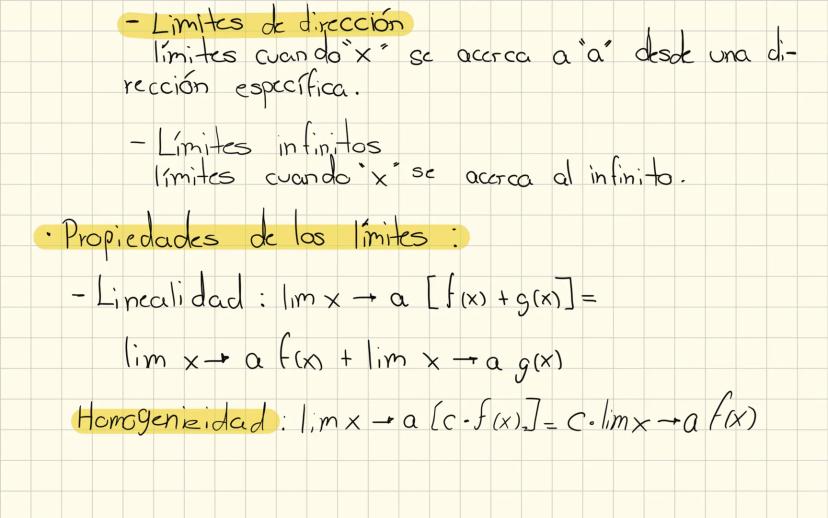 - Limites de dirección
límites cuando "x" se acerca a "a" desde una di-
rección específica.
- Límites infinitos
límites cuando "x" se acerca al infinito.
· Propiedades de los límites :
- Linealidad : lim x → a [f(x) + g(x)] =
lim x → a f(x) + lim x → a g(x)
Homogenieidad : lim x → a [c · f(x)] = c · lim x → a f(x)